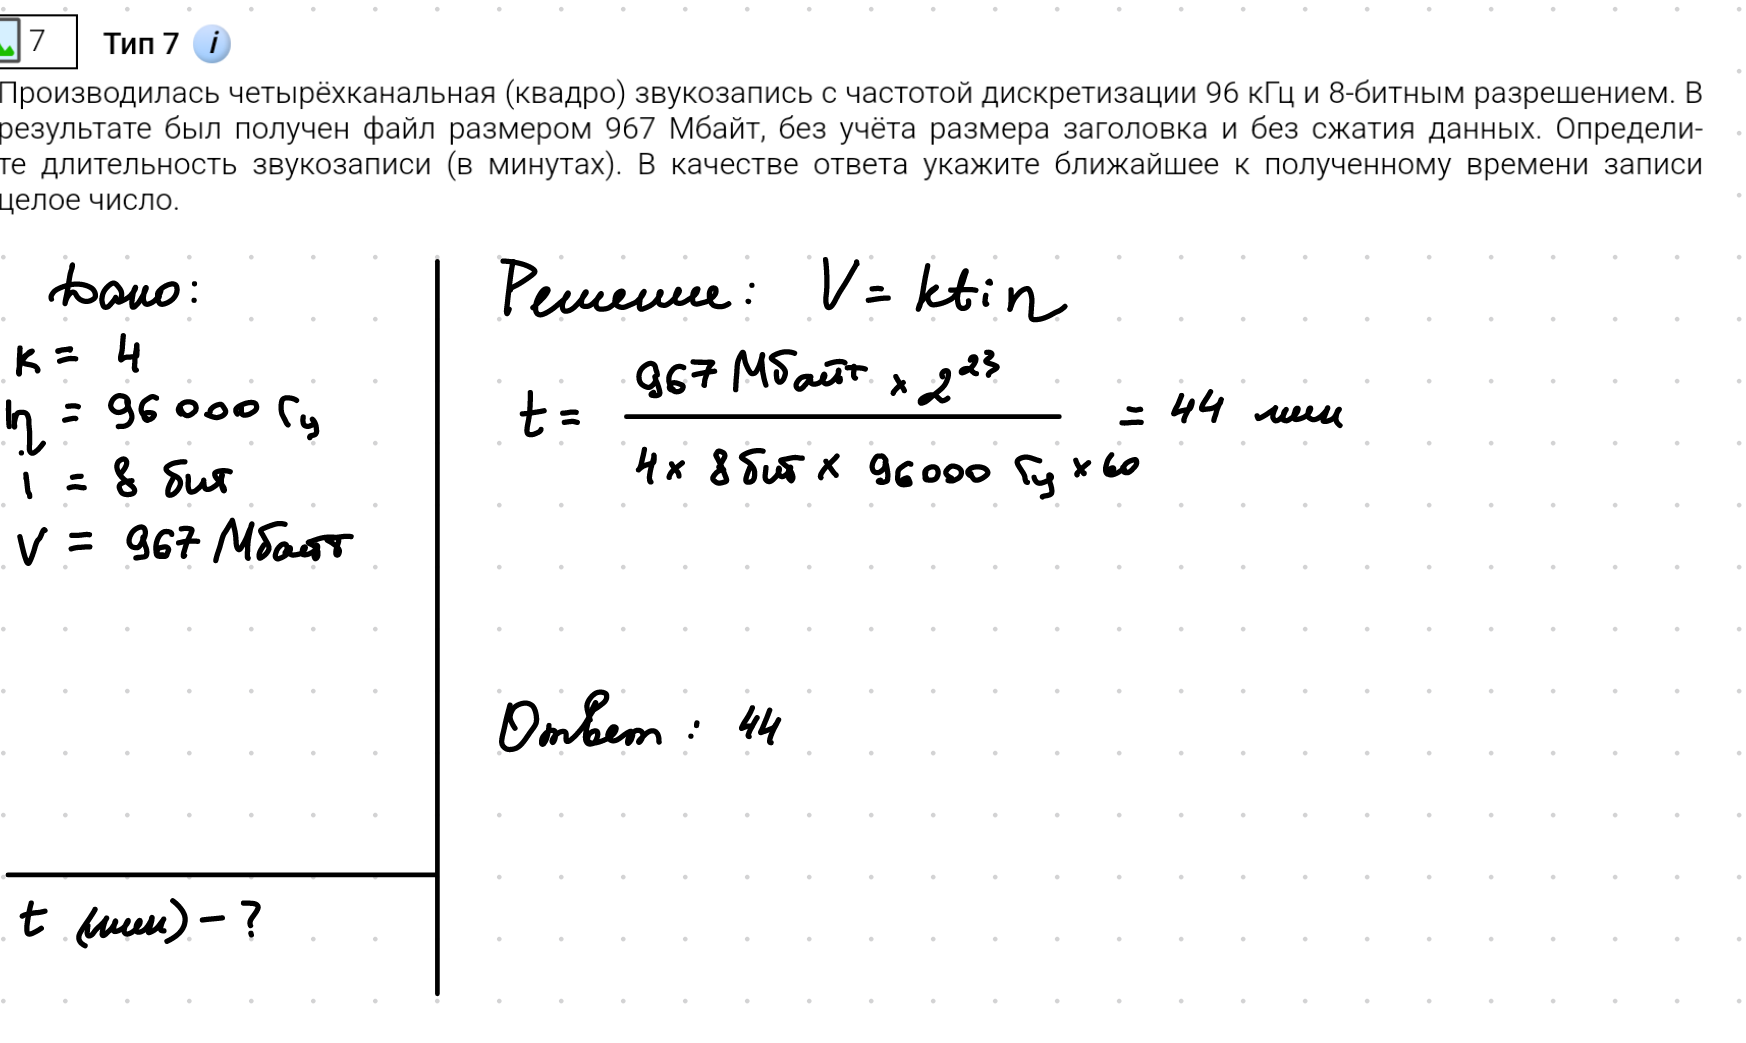 7 Тип 7 i
Производилась четырёхканальная (квадро) звукозапись с частотой дискретизации 96 кГц и 8-битным разрешением. В
результате был получен файл размером 967 Мбайт, без учёта размера заголовка и без сжатия данных. Определи-
те длительность звукозаписи (в минутах). В качестве ответа укажите ближайшее к полученному времени записи
целое число.
Дано:
k = 4
η = 96 000 Гц
i = 8 бит
V = 967 Мбайт
t (мин) - ?
Решение: V = k t i η
t = 967 Мбайт × 2^23 / 4 × 8 бит × 96000 Гц × 60 = 44 мин
Ответ: 44